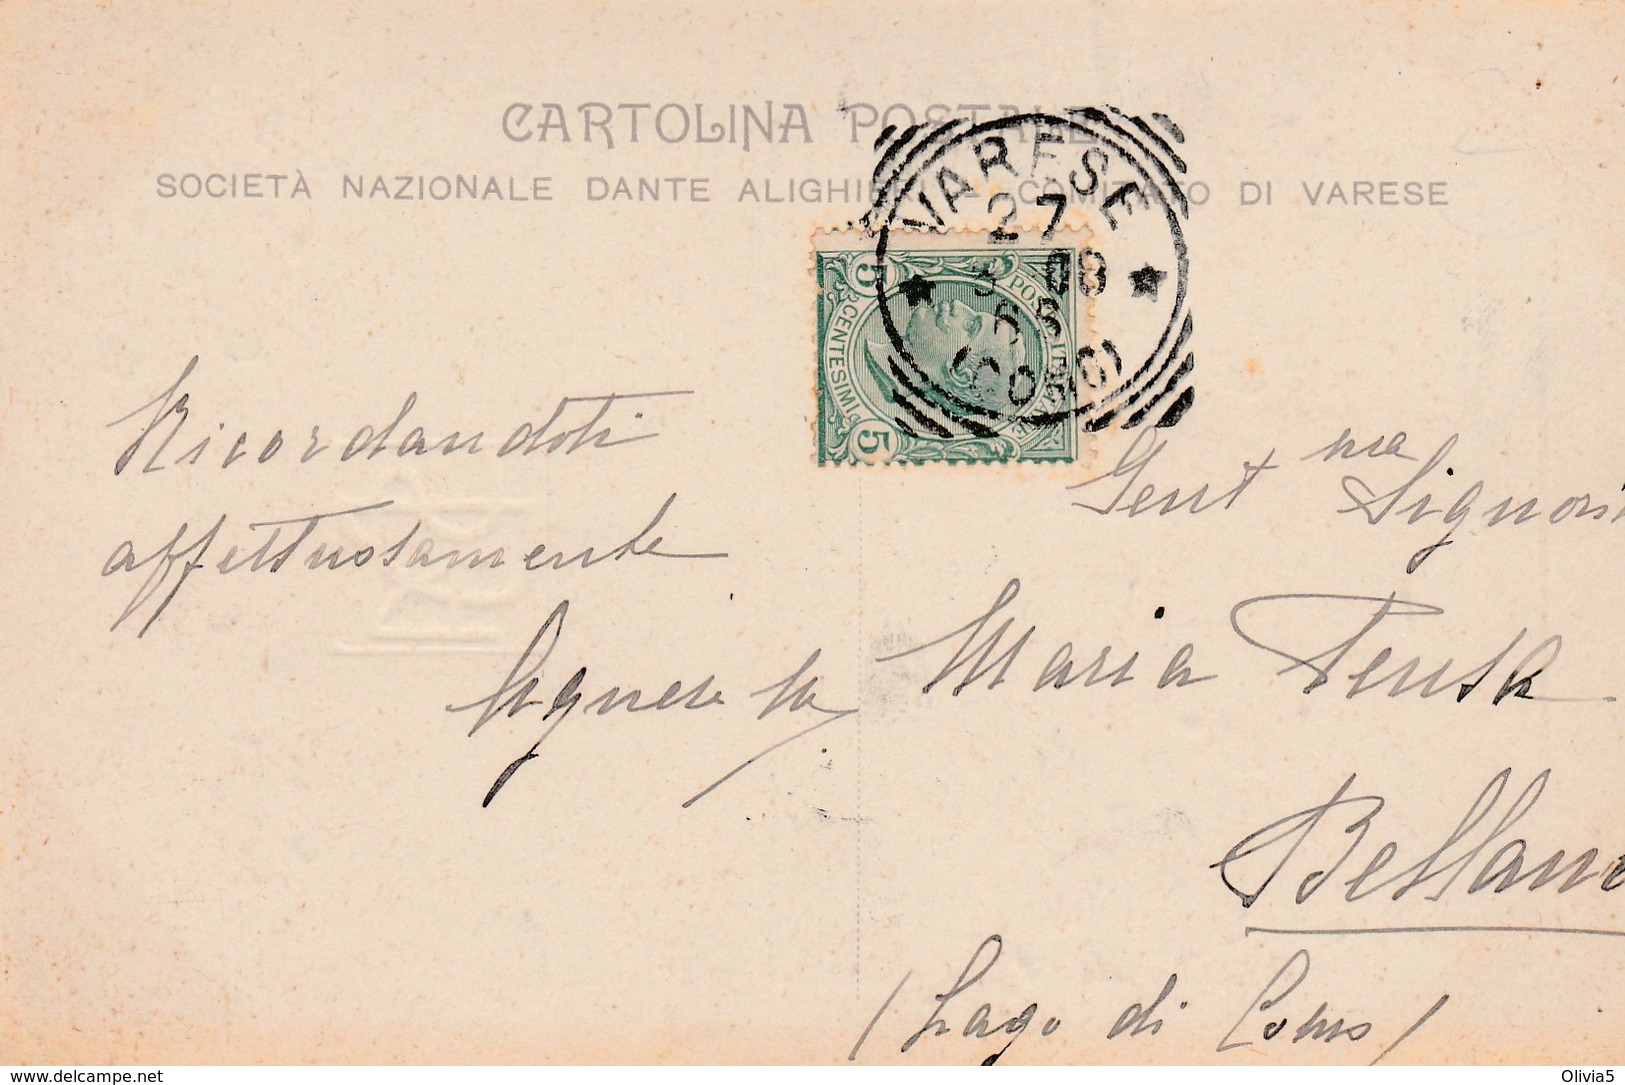 CARTOLINA POSTALE
SOCIETÀ NAZIONALE DANTE ALIGHIERI - COMITATO DI VARESE
VARESE
27
08
(COMO)
5 POSTE ITALIANE
CENTESIMI 5
Ricordandoti
affettuosamente
Agnese
Gent ma Signori
Maria Teresa
Bellano
(Lago di Como)
www.delcampe.net
Olivia5